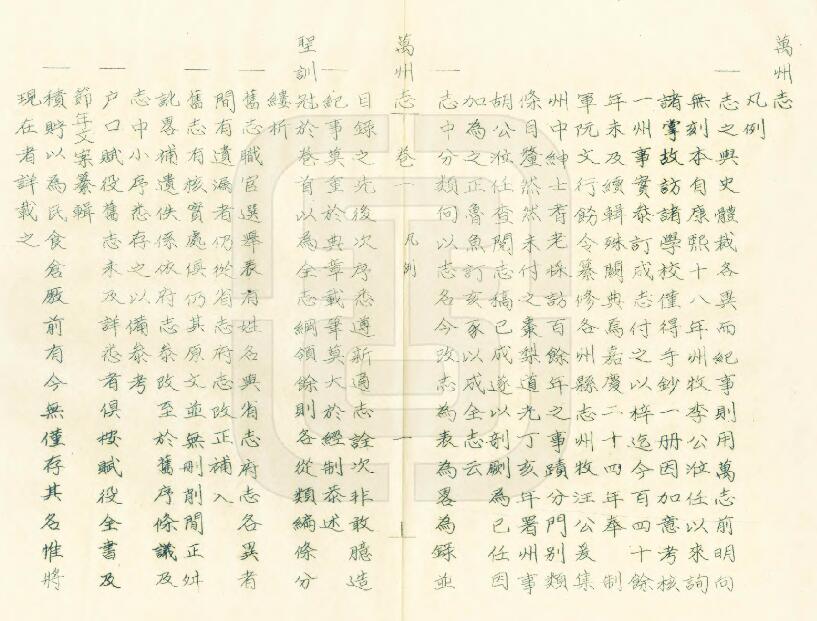 萬州志
凡例
一志之與史體裁各異而紀事則用萬志前明向
無刻本自康熙十八年州牧李公涖任以來詢
諸掌故訪諸學校僅得手鈔一册因加意考核
一州事實叅訂成志付之以梓迄今百四十餘
年未及續輯殊闕典焉嘉慶二十四年奉 制
軍阮文行飭令纂修各州縣志州牧汪公爰集
州中紳士耆老採訪百餘年之事蹟分門別類
條目釐然然未付之棗梨道光丁亥年署州事
胡公涖任查閱志稿已成遂以剞劂為已任因
加為之正魯魚訂亥豕以成全志云
一志中分類向以志名今改志為表為畧為錄並
萬州志 卷一 凡例 一
目錄之先後次序悉遵新通志詮次非敢臆造
一紀事莫重於典章載筆莫大於經制恭述
聖訓冠於卷首以為全志綱領餘則各從類編條分
縷析
一舊志職官選舉表有姓名與省志府志各異者
間有遺漏者仍從省志府志改正補入
一舊志有核實處俱仍其原文並無刪削間正舛
訛畧補遺佚係依府志叅改至於舊序條議及
志中小序悉存之以備叅考
一户口賦役舊志未及詳悉者俱按賦役全書及
節年文案纂輯
一積貯以為民食倉厫前有今無僅存其名惟將
現在者詳載之